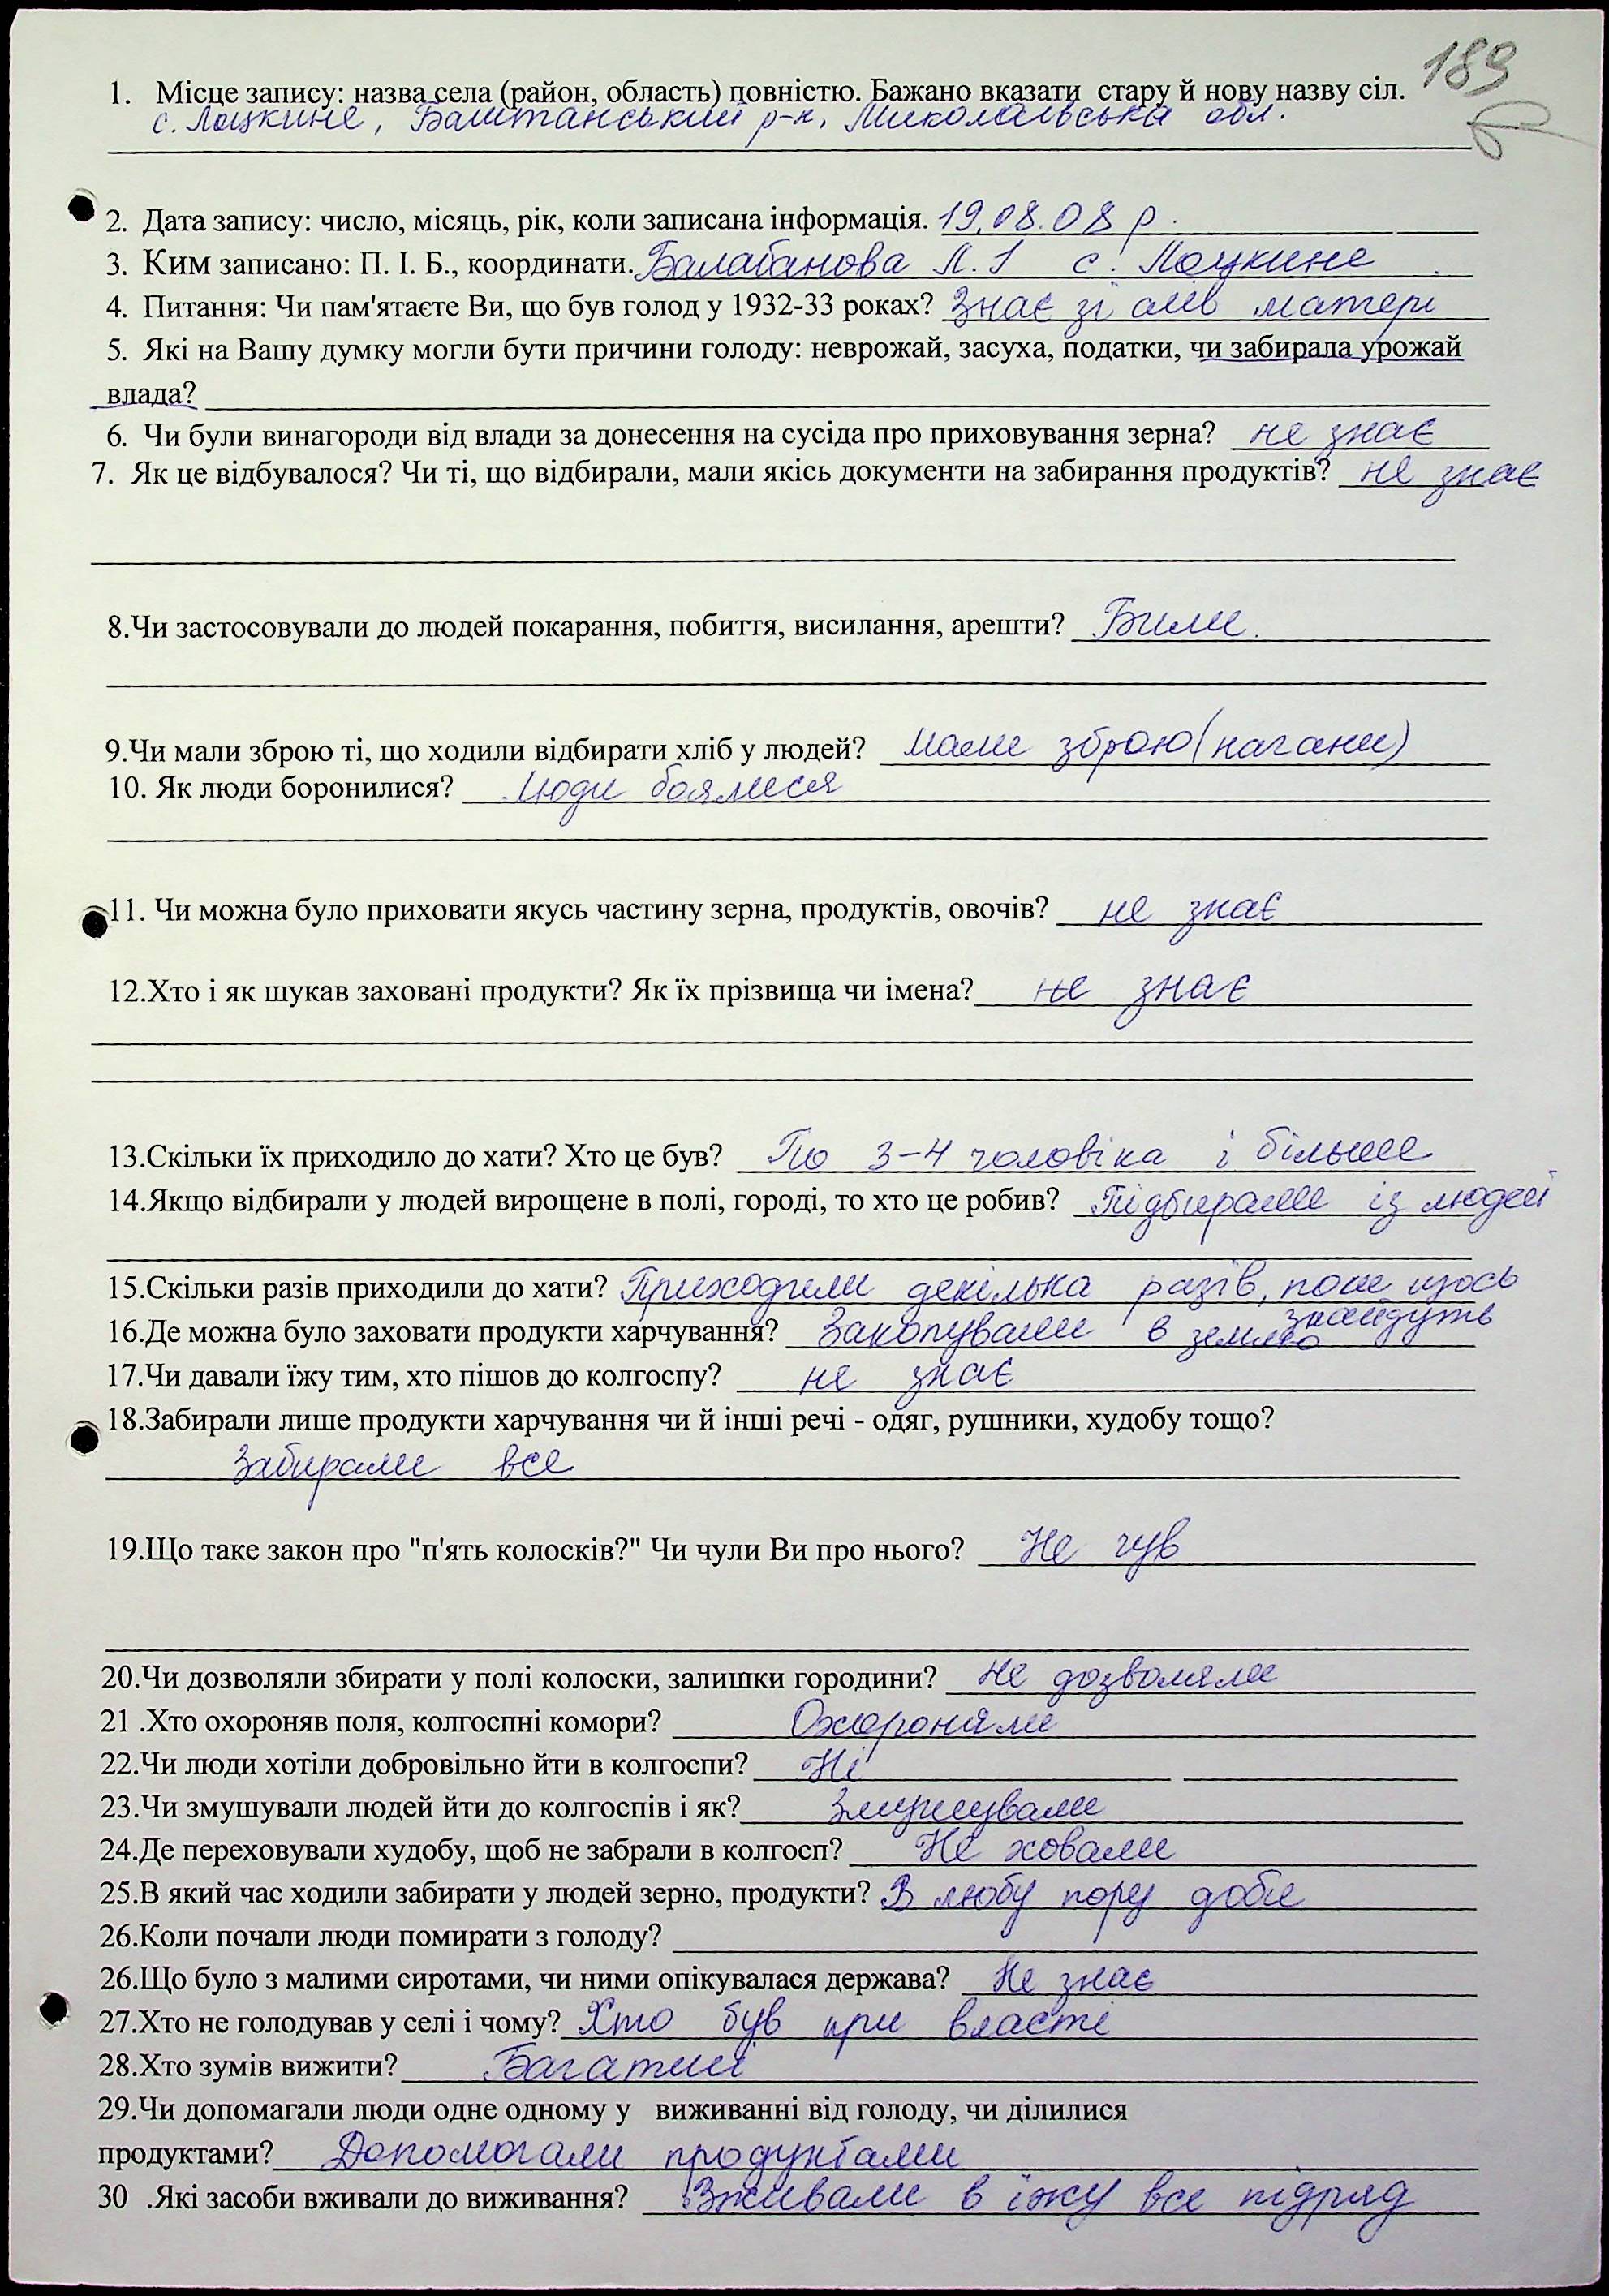 189
1. Місце запису: назва села (район, область) повністю. Бажано вказати стару й нову назву сіл.
с. Лоцкине, Баштанський р-н, Миколаївська обл.
2. Дата запису: число, місяць, рік, коли записана інформація. 19.08.08 р.
3. Ким записано: П. І. Б., координати. Балабанова Л. І с. Лоцкине
4. Питання: Чи пам'ятаєте Ви, що був голод у 1932-33 роках? Знає зі слів матері
5. Які на Вашу думку могли бути причини голоду: неврожай, засуха, податки, чи забирала урожай
влада?
6. Чи були винагороди від влади за донесення на сусіда про приховування зерна? не знає
7. Як це відбувалося? Чи ті, що відбирали, мали якісь документи на забирання продуктів? не знає
8.Чи застосовували до людей покарання, побиття, висилання, арешти? Били.
9.Чи мали зброю ті, що ходили відбирати хліб у людей? Мали зброю (нагани)
10. Як люди боронилися? Люди боялися
11. Чи можна було приховати якусь частину зерна, продуктів, овочів? не знає
12.Хто і як шукав заховані продукти? Як їх прізвища чи імена? не знає
13.Скільки їх приходило до хати? Хто це був? По 3-4 чоловіка і більше
14.Якщо відбирали у людей вирощене в полі, городі, то хто це робив? Підбирали із людей
15.Скільки разів приходили до хати? Приходили декілька разів, поки щось
знайдуть
16.Де можна було заховати продукти харчування? Закопували в землю
17.Чи давали їжу тим, хто пішов до колгоспу? не знає
18.Забирали лише продукти харчування чи й інші речі - одяг, рушники, худобу тощо?
Забирали все
19.Що таке закон про "п'ять колосків?" Чи чули Ви про нього? Не чув
20.Чи дозволяли збирати у полі колоски, залишки городини? Не дозволяли
21 .Хто охороняв поля, колгоспні комори? Охороняли
22.Чи люди хотіли добровільно йти в колгоспи? Ні
23.Чи змушували людей йти до колгоспів і як? Змушували
24.Де переховували худобу, щоб не забрали в колгосп? Не ховали
25.В який час ходили забирати у людей зерно, продукти? В любу пору доби
26.Коли почали люди помирати з голоду?
26.Що було з малими сиротами, чи ними опікувалася держава? Не знає
27.Хто не голодував у селі і чому? Хто був при власті
28.Хто зумів вижити? Багатші
29.Чи допомагали люди одне одному у виживанні від голоду, чи ділилися
продуктами? Допомогали продуктами
30 .Які засоби вживали до виживання? Вживали в їжу все підряд